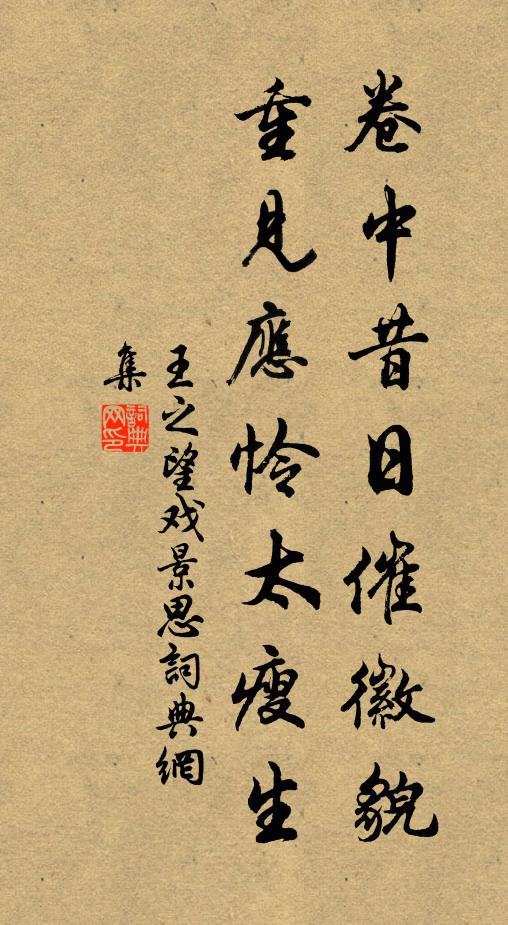 卷中昔日催徽貌
重見應怜太瘦生
王之望戏景思詞典網
集
詞典网印